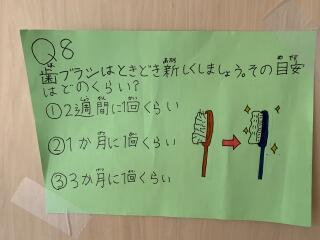 Q8
歯ブラシはときどき新しくしましょう。その目安
はどのくらい?
①2週間に1回くらい
②1か月に1回くらい
③3か月に1回くらい